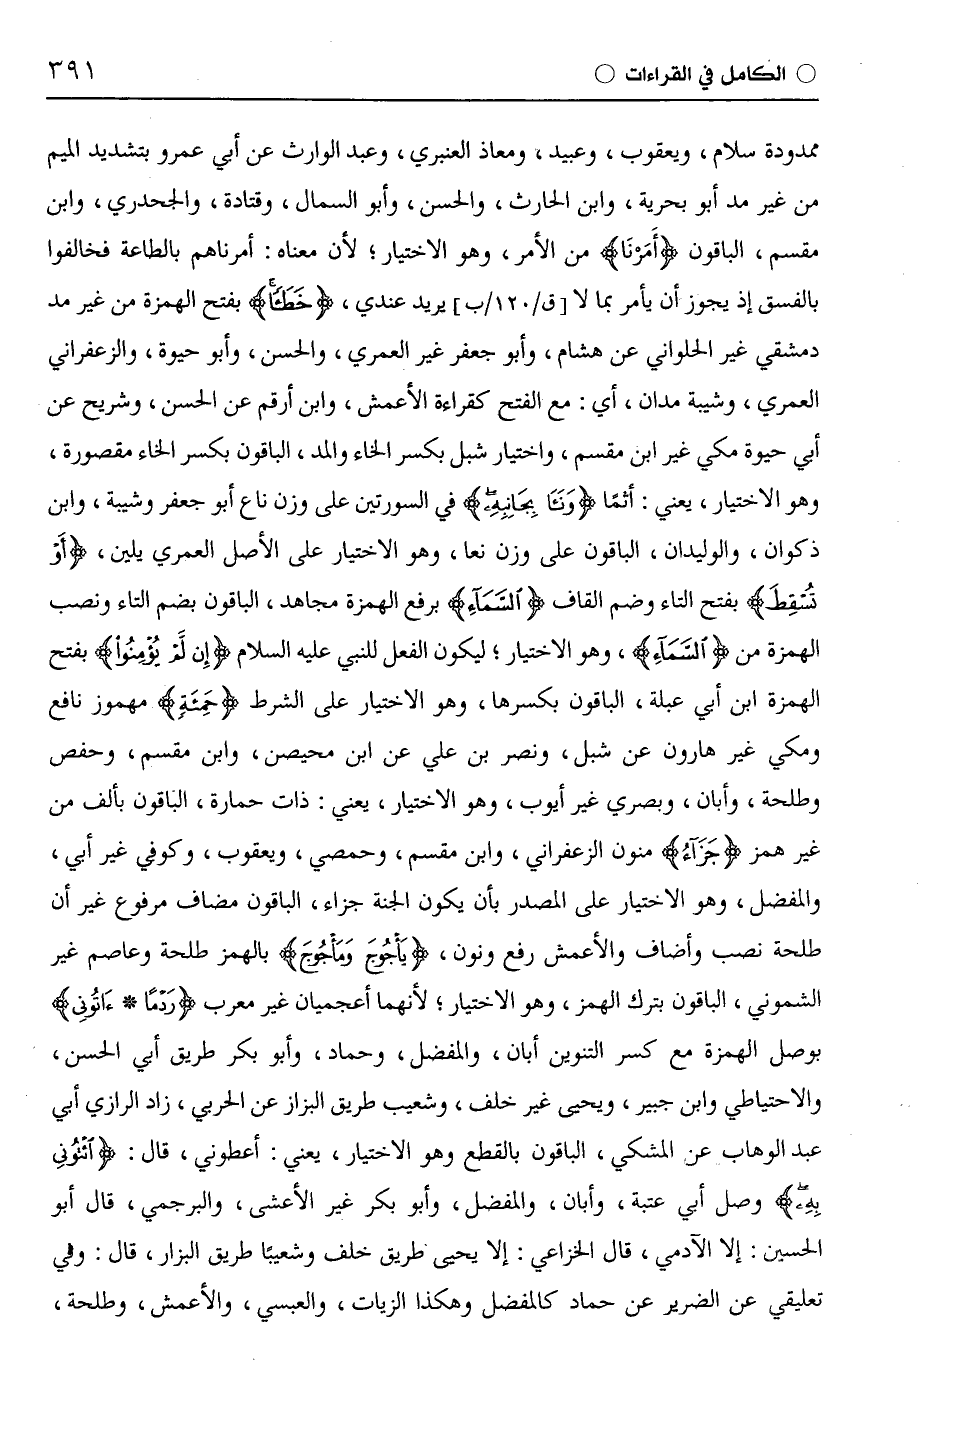 ○ الكامل في القراءات ○
٣٩١
ممدودة سلام ، ويعقوب ، وعبيد ، ومعاذ العنبري ، وعبد الوارث عن أبي عمرو بتشديد الميم
من غير مد أبو بحرية ، وابن الحارث ، والحسن ، وأبو السمال ، وقتادة ، والجحدري ، وابن
مقسم ، الباقون ﴿أَمَرْنَا﴾ من الأمر ، وهو الاختيار ؛ لأن معناه : أمرناهم بالطاعة فخالفوا
بالفسق إذ يجوز أن يأمر بما لا [ق/١٢٠/ب] يريد عندي ، ﴿خَطَـًٔا﴾ بفتح الهمزة من غير مد
دمشقي غير الحلواني عن هشام ، وأبو جعفر غير العمري ، والحسن ، وأبو حيوة ، والزعفراني
العمري ، وشيبة مدان ، أي : مع الفتح كقراءة الأعمش ، وابن أرقم عن الحسن ، وشريح عن
أبي حيوة مكي غير ابن مقسم ، واختيار شبل بكسر الخاء والمد ، الباقون بكسر الخاء مقصورة ،
وهو الاختيار ، يعني : أثمًا ﴿وَنَـَٔا بِجَانِبِهِۦ﴾ في السورتين على وزن ناع أبو جعفر وشيبة ، وابن
ذكوان ، والوليدان ، الباقون على وزن نعا ، وهو الاختيار على الأصل العمري يلين ، ﴿أَوْ
تُسْقِطَ﴾ بفتح التاء وضم القاف ﴿ٱلسَّمَآءِ﴾ برفع الهمزة مجاهد ، الباقون بضم التاء ونصب
الهمزة من ﴿ٱلسَّمَآءِ﴾ ، وهو الاختيار ؛ ليكون الفعل للنبي عليه السلام ﴿إِن لَّمْ يُؤْمِنُوا۟﴾ بفتح
الهمزة ابن أبي عبلة ، الباقون بكسرها ، وهو الاختيار على الشرط ﴿حَمِئَةٍ﴾ مهموز نافع
ومكي غير هارون عن شبل ، ونصر بن علي عن ابن محيصن ، وابن مقسم ، وحفص
وطلحة ، وأبان ، وبصري غير أيوب ، وهو الاختيار ، يعني : ذات حمارة ، الباقون بألف من
غير همز ﴿جَزَآءً﴾ منون الزعفراني ، وابن مقسم ، وحمصي ، ويعقوب ، وكوفي غير أبي ،
والمفضل ، وهو الاختيار على المصدر بأن يكون الجنة جزاء ، الباقون مضاف مرفوع غير أن
طلحة نصب وأضاف والأعمش رفع ونون ، ﴿يَأْجُوجَ وَمَأْجُوجَ﴾ بالهمز طلحة وعاصم غير
الشموني ، الباقون بترك الهمز ، وهو الاختيار ؛ لأنهما أعجميان غير معرب ﴿رَدْمًا * ءَاتُونِى﴾
بوصل الهمزة مع كسر التنوين أبان ، والمفضل ، وحماد ، وأبو بكر طريق أبي الحسن ،
والاحتياطي وابن جبير ، ويحيى غير خلف ، وشعيب طريق البزاز عن الحربي ، زاد الرازي أبي
عبد الوهاب عن المشكي ، الباقون بالقطع وهو الاختيار ، يعني : أعطوني ، قال : ﴿ٱئْتُونِى
بِهِۦ﴾ وصل أبي عتبة ، وأبان ، والمفضل ، وأبو بكر غير الأعشى ، والبرجمي ، قال أبو
الحسين : إلا الآدمي ، قال الخزاعي : إلا يحيى طريق خلف وشعيبًا طريق البزار ، قال : وفي
تعليقي عن الضرير عن حماد كالمفضل وهكذا الزيات ، والعبسي ، والأعمش ، وطلحة ،